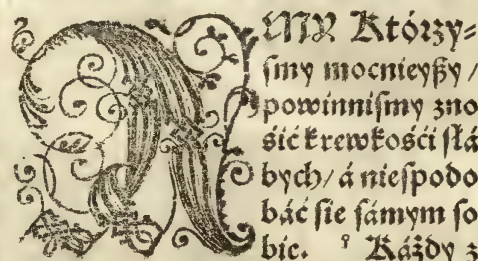 A MY Którzy=
ſmy mocnieyßy /
powinniſmy zno
śić krewkośći ſłá
bych / á nieſpodo
báć ſie ſámym ſo
bie. ² Káżdy z